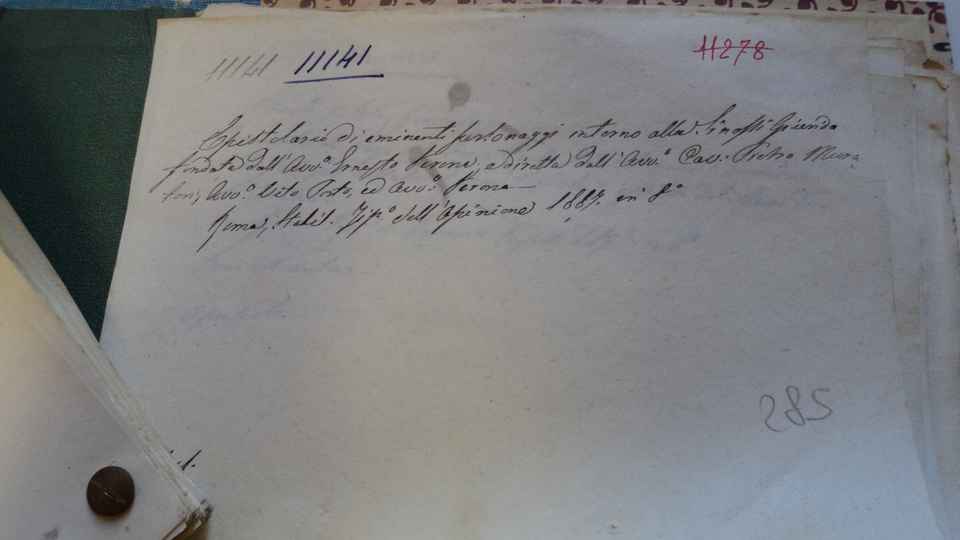 11141 11141
11278
Epistolario di eminenti personaggi intorno alla Sinossi Giurid.a
fondata dall' Avv.º Ernesto Verona, e diretta dall' Avv.º Cav. Pietro Mura-
tori, Avv.º Vito Porto, ed Avv.º Verona
Roma, Stabil. Tip.º dell' Opinione 1887. in 8º
285